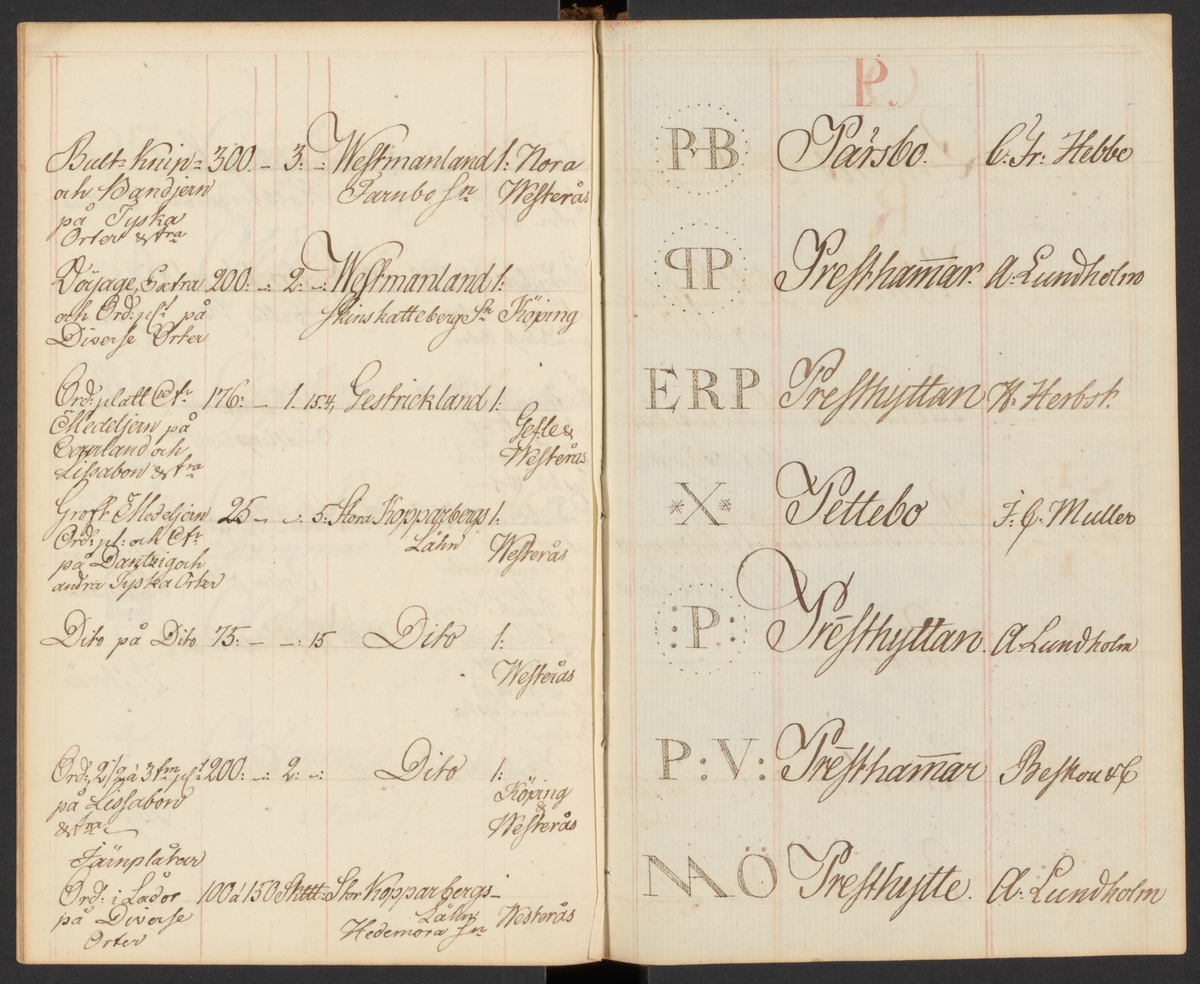 Bult- Knip- 300. – 3: –: Westmanland 1: Nora
och Bandjern Farnbo Sn Westerås
på Tyska
Orter &tra
Voijage, Extra 200: –: 2: –: Westmanland 1:
och Ord: på Skinskatteberg Sn Köping
Diverse Orter
Ord: platt 176: – 1. 15.4, Gestrickland 1:
Medeljern på Gefle &
och Westerås
Lissabon &tra
Groft Medeljern 25 – –: 5: Stora Kopparbergs 1:
Ord: pl: och Lähn Westerås
på Dantzig och
andra Tyska Orter
Dito på Dito 75: – –: 15 Dito 1:
Westerås
Ord: 2 1/2 à 3 tm 200: –: 2: –: Dito 1:
på Lissabon Köping
&tra &
Westerås
Järnplåtar
Ord: i Lådor 100 à 150 Stor Kopparbergs–
på Diverse Lähn Westerås
Orter Hedemora Sn
P.
P B Pärsbo. C. Fr: Hebbe
P P Presthamar. A: Lundholm
E R P Presthyttan H. Herbst.
* X * Pettebo J. C. Muller
: P : Presthyttan. A. Lundholm
P : V : Presthamar Beskou & C
N A Ö Presthytte. A: Lundholm